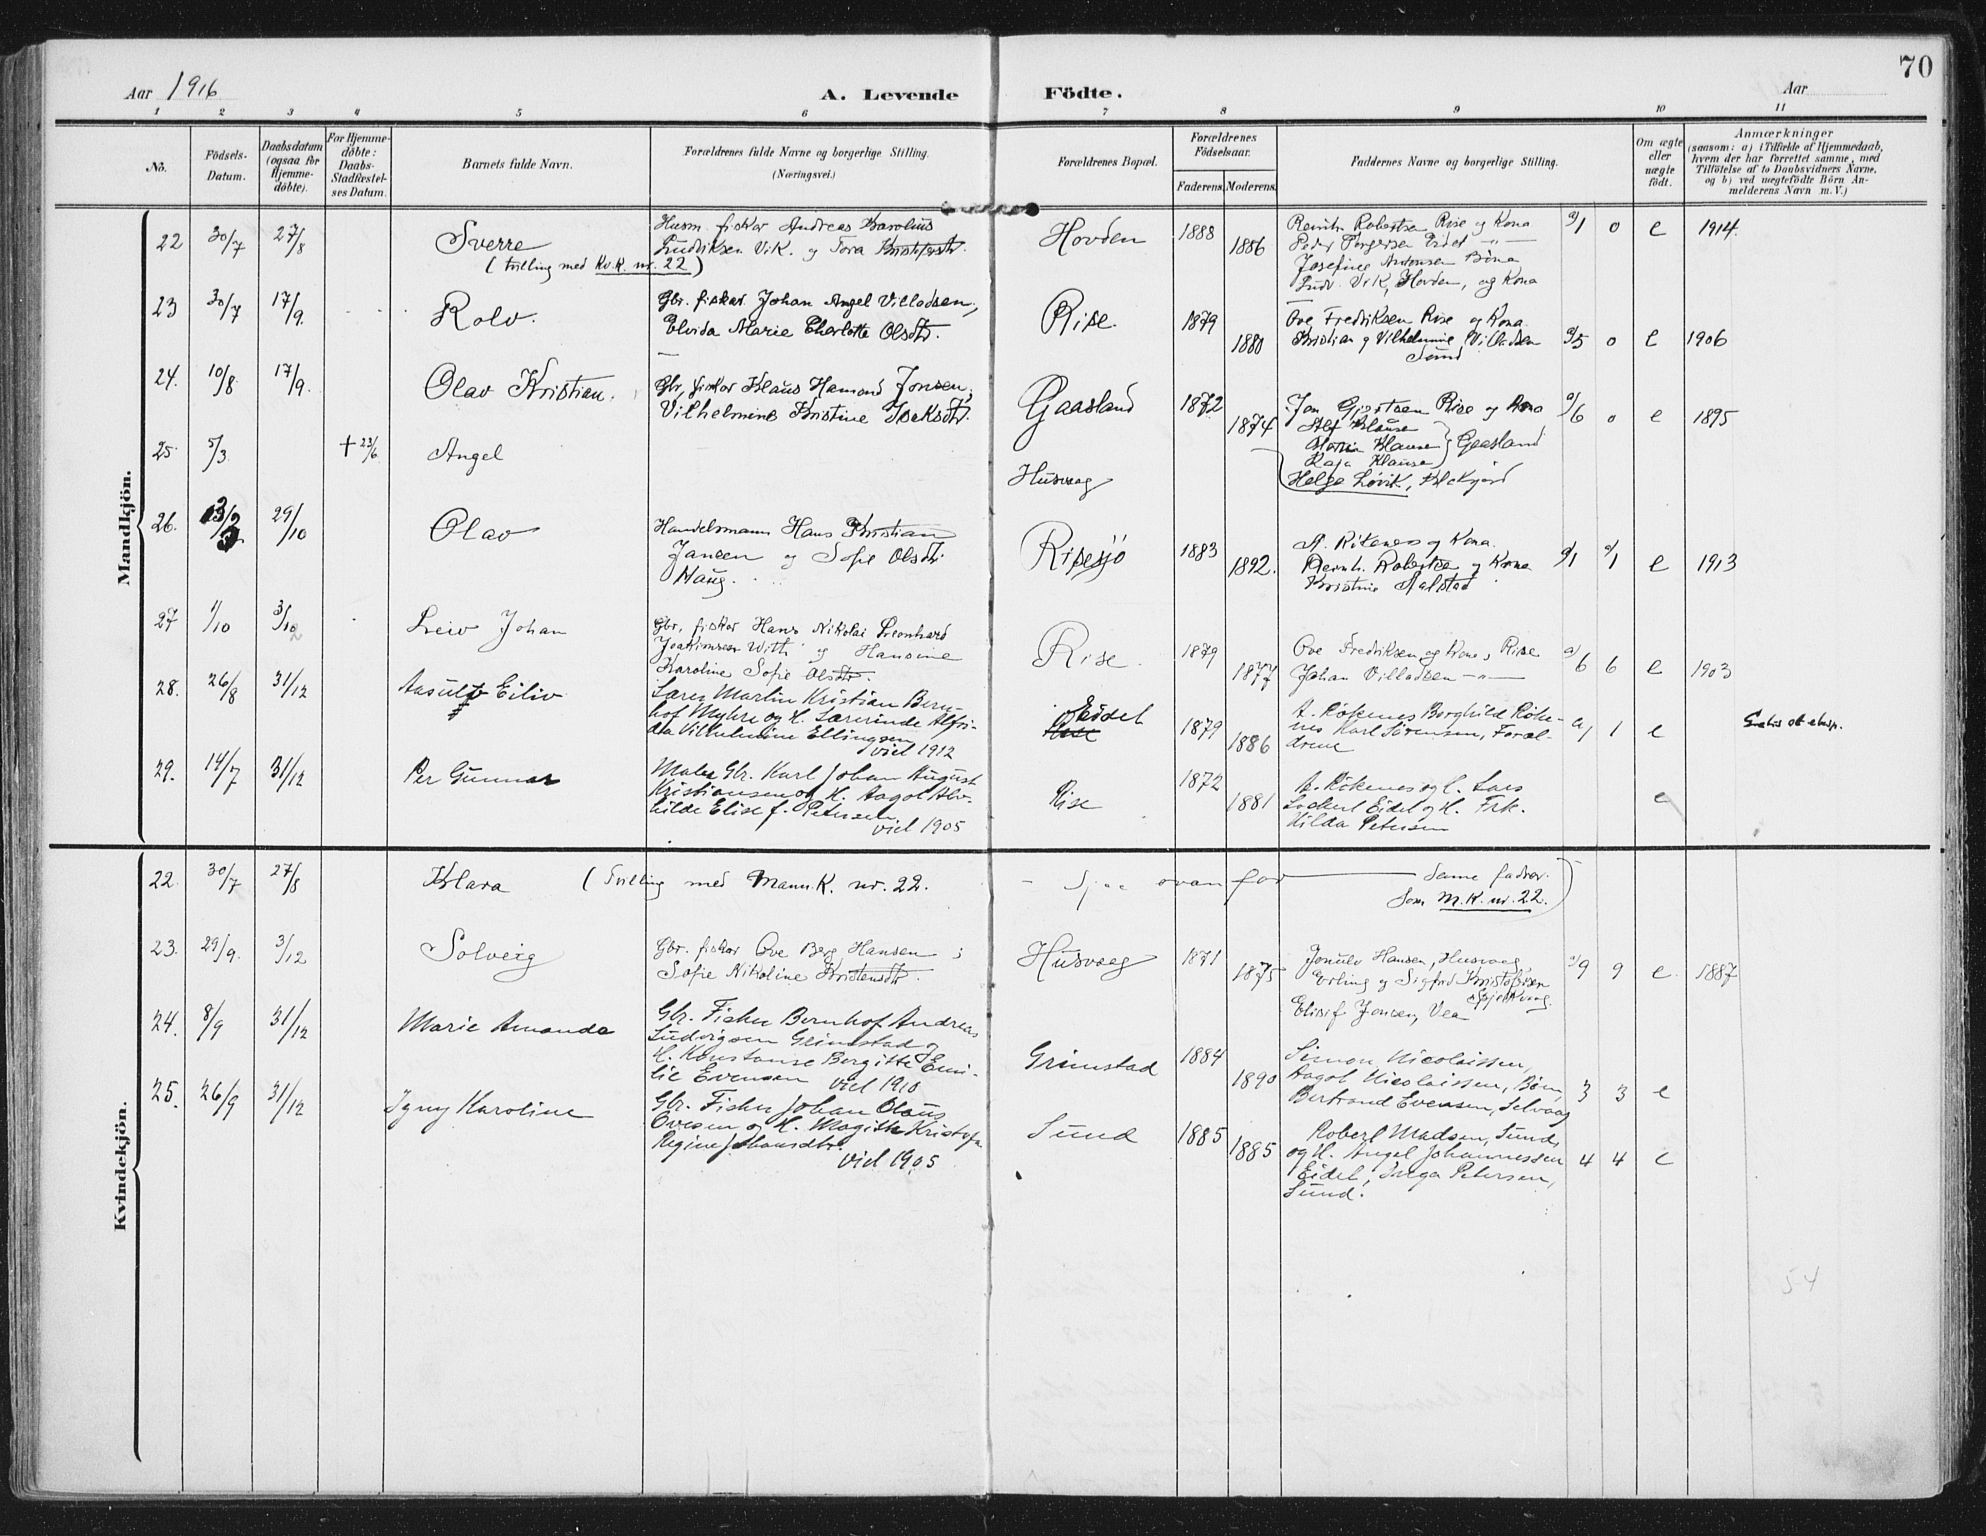 70
Aar 1916
A. Levende Födte.
Aar
1 2 3 4 5 6 7 8 9 10 11
No.
Födsels-
Datum.
Daabsdatum
(ogsaa for
Hjemme-
döbte).
For Hjemme-
döbte:
Daabs-
Stadfæstel-
ses Datum.
Barnets fulde Navn.
Forældrenes fulde Navne og borgerlige Stilling.
(Næringsvei.)
Forældrenes Bopæl.
Forældrenes
Fødselsaar.
Faderens. Moderens.
Faddernes Navne og borgerlige Stilling.
Om ægte
eller
uægte
födt.
Anmærkninger
(saasom: a) i Tilfælde af Hjemmedaab,
hvem der har forrettet samme, med
Tilföielse af to Daabsvidners Navne,
og b) ved uægtefödte Börn An-
melderens Navn m. V.)
Mandkjön.
22 30/7 27/8 Sverre
(tvilling med Kv.K. nr. 22)
Husm. fisker Andreas Karolius
Ludriksen Vik. og Tora
Hovden 1888 1886
Robertsen Rise og Kona
Peder Torgersen Eidet
Josefine Antonsen
Vik, Hovden, og Kona
1 0 e 1914.
23 30/7 17/9. Rolv.
Gbr. fisker Johan Angel Villadsen,
Elvida Marie Charlotte Olsdtr.
Rise. 1879 1880
Ove Fredriksen Rise og Kona
Kristian og Vilhelmine Villadsen
Sund
5 0 e 1906
24. 10/8 17/9. Olav Kristian.
Gbr, fisker Klaus Hamond Jonsen;
Vilhelmine Kristine
Gaasland 1872 1874
Jon Rise og Kona
Alf Klausen
Klausen
Kaja Klausen
Gaasland
Helge Løvik,
6 0 e 1895
25 5/3 + 23/6 Angel
Husvaag
26. 13/3 29/10 Olav
Handelsmann Hans Kristian
Jansen og Sofie Olsdtr
Haug.
Risesjö 1883 1892.
A. Rökenes og Kona.
Robertsen og Kona
Kristine Aalstad
1 1 e 1913
27 1/10 3/12 Leiv Johan
Gbr, fisker Hans Nikolai Leonhard
Joakimsen With og Hansine
Karoline Sofie Olsdtr.
Rise. 1879 1877
Ove Fredriksen og Kona, Rise
Johan Villadsen
6 6 e 1903
28. 26/8 31/12 Aasulv Eiliv
Lærer Martin Kristian Bern-
hof Myhre og H. Lærerinde Alfri-
da Vilhelmine Ellingsen
viet 1912
Eidet 1879 1886
A. Rökenes Borghild Röke-
nes Karl Sörensen, Foræl-
drene
1 1 e
29. 14/7 31/12 Per Gunnar
Maler Gbr. Karl Johan August
Kristiansen og H. Aagot Alv-
hilde Elise f. Petersen
viet 1905
Rise 1872 1881
A. Rökenes og H. Lars
Lockert Eidet og H. Frk.
Hilda Petersen
e
Kvindekjön.
22. 30/7 27/8 Klara (Tvilling med Mann.K. nr. 22.
- Sjaa ovanfor
Same fadrar.
Som M.K. nr. 22.
23. 29/9. 3/12 Solveig
Gbr. fisker Ove Berg Hansen;
Sofie Nikoline Kristensdtr.
Husvaag 1871 1875
Hansen, Husvaag
Erling og Sigfrid Kristofersen
Elisif Jensen, Vea
9 9 e. 1887
24. 8/9 31/12 Marie Amanda
Gbr. Fisker Bernhof Andreas
Ludvigsen Grimstad og
H. Konstanse Bergitte Emi-
lie Evensen viet 1910
Grimstad 1884 1890
Simon Nicolaissen,
Aagot Nicolaissen, Bönn
Bertrand Evensen, Selvaag
3 3 e
25. 26/9 31/12 Igny Karoline
Gbr. Fisker Johan Olaus
Ovesen og H. Magitte Kristofa
Regine Johansdtr.
viet 1905
Sund 1885 1885
Robert Madsen, Sund
og H. Angel Johannessen
Eidet, Inga Petersen,
Sund.
4 4 e
54